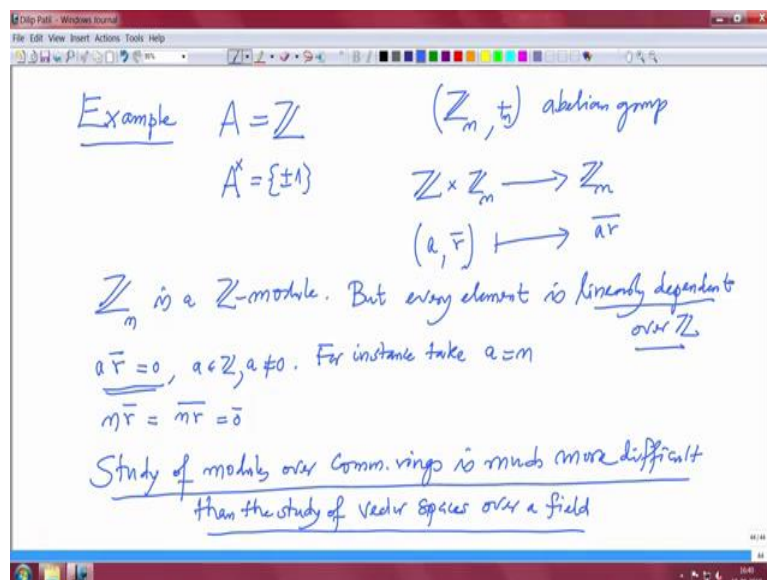 Dilip Patil - Windows Journal
File Edit View Insert Actions Tools Help
Example A = ℤ (ℤₙ, +ₙ) abelian group
Aˣ = {±1} ℤ × ℤₙ ⟶ ℤₙ
(a, r̅) ⟼ a̅r̅
ℤₙ is a ℤ-module. But every element is linearly dependent
over ℤ
a r̅ = 0, a ∈ ℤ, a ≠ 0. For instance take a = n
n r̅ = n̅r̅ = 0̅
Study of modules over Comm. rings is much more difficult
than the study of vector spaces over a field
44/44
44
16:40